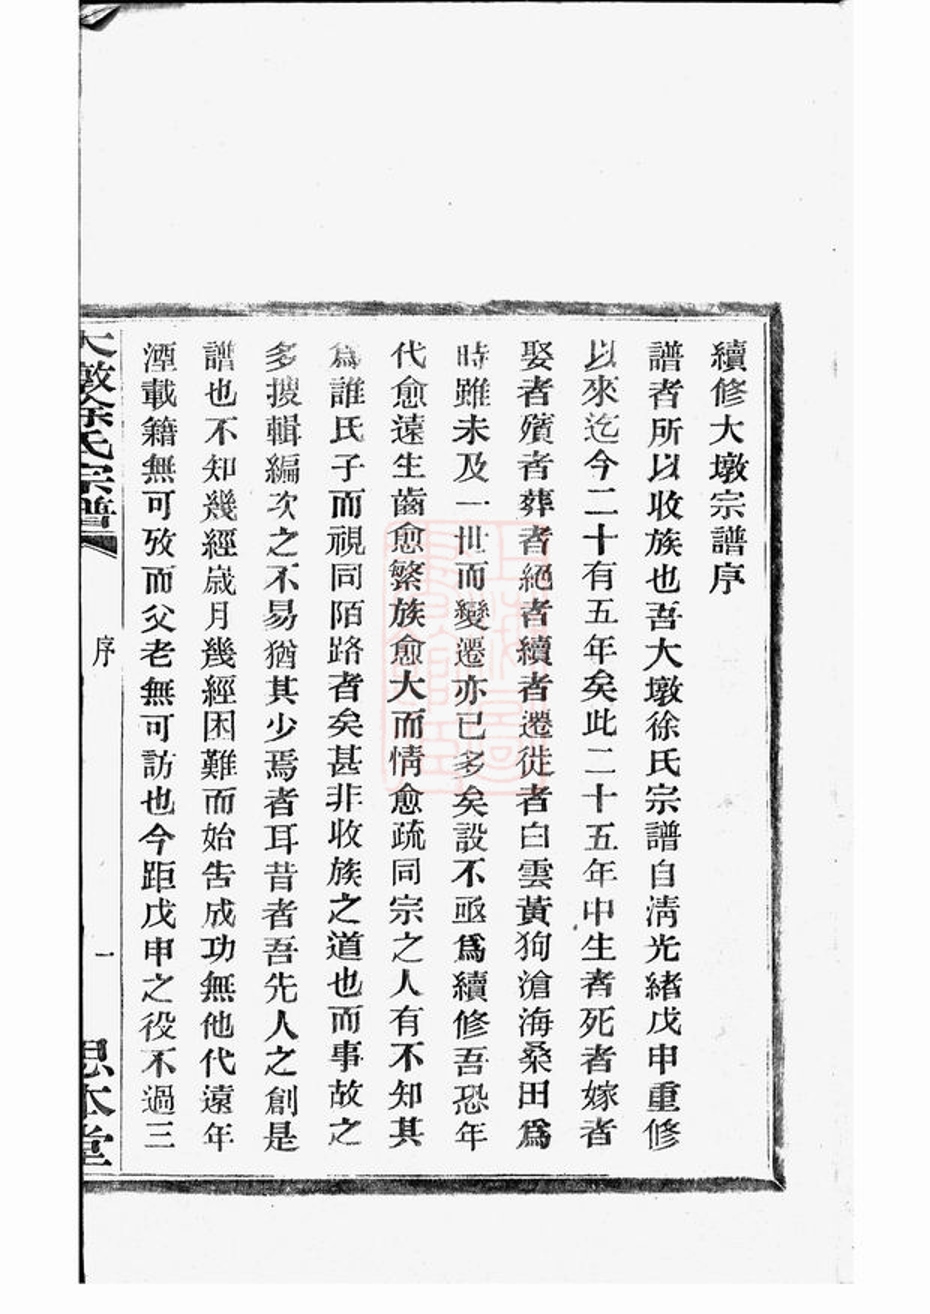 續修大墩宗譜序
譜者所以收族也吾大墩徐氏宗譜自淸光緒戊申重修
以來迄今二十有五年矣此二十五年中生者死者嫁者
娶者殯者葬者絕者續者遷徙者白雲黃狗滄海桑田爲
時雖未及一世而變遷亦已多矣設不亟爲續修吾恐年
代愈遠生齒愈繁族愈大而情愈疏同宗之人有不知其
爲誰氏子而視同陌路者矣甚非收族之道也而事故之
多搜輯編次之不易猶其少焉者耳昔者吾先人之創是
譜也不知幾經歲月幾經困難而始告成功無他代遠年
湮載籍無可攷而父老無可訪也今距戊申之役不過三
大墩徐氏宗譜
序
一
思本堂